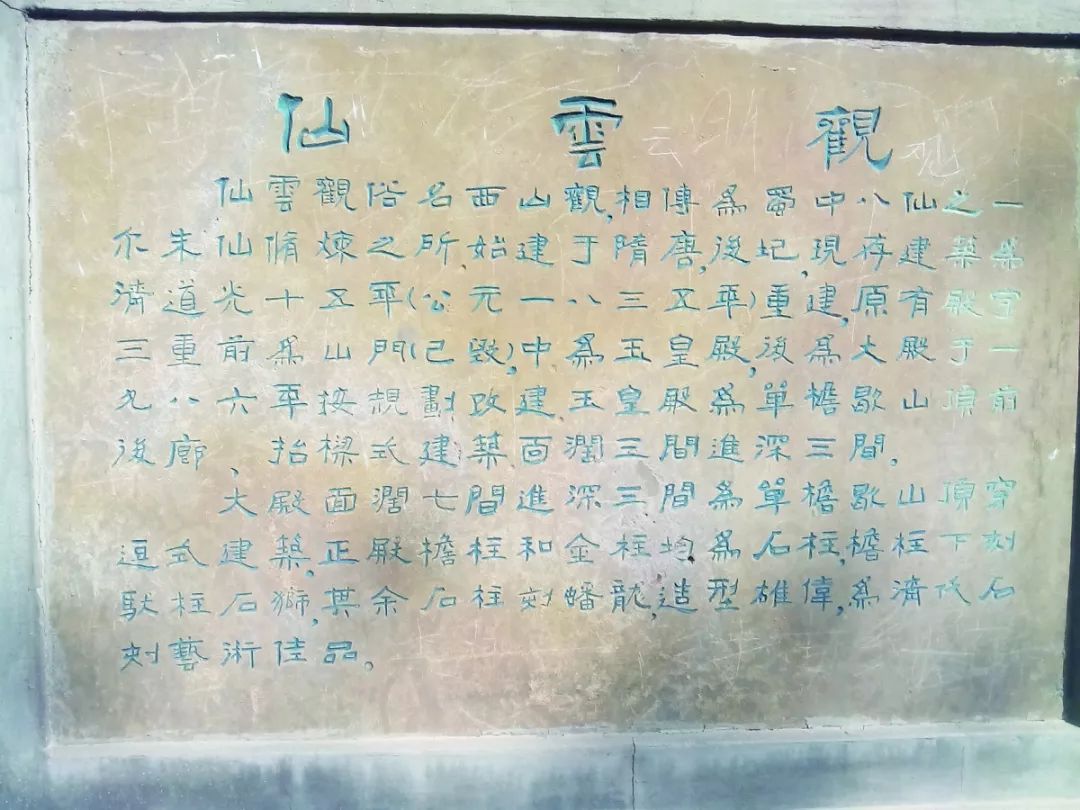 仙雲觀
仙雲觀俗名西山觀,相傳為蜀中八仙之一
尒朱仙脩煉之所,始建于隋唐,後圮,現存建築系
清道光十五年(公元一八三五年)重建,原有殿宇
三重前為山門(已毀),中為玉皇殿,後為大殿于一
九八六年按規劃改建.玉皇殿為單檐歇山頂前
後廊、抬樑式建築.面濶三間進深三間.
大殿面濶七間進深三間為單檐歇山頂穿
逗式建築,正殿檐柱和金柱均為石柱,檐柱下刻
馱柱石獅,其余石柱刻蟠龍,造型雄偉,為清代石
刻藝術佳品。